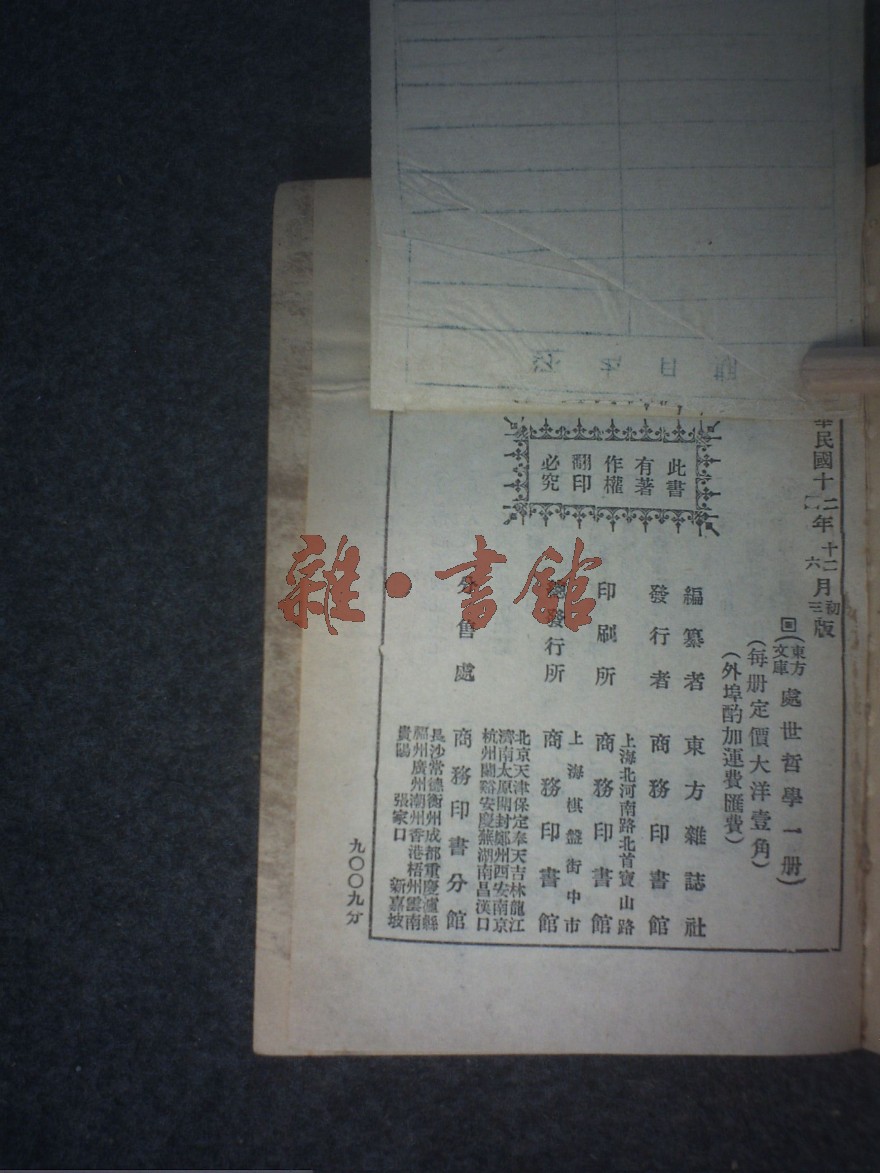 華民國十二年十二月初版
六 三
回(東方文庫)處世哲學一册)
(每册定價大洋壹角)
(外埠酌加運費匯費)
此書
有著
作權
翻印
必究
編纂者 東方雜誌社
發行者 商務印書館
上海北河南路北首寶山路
印刷所 商務印書館
上海棋盤街中市
總發行所 商務印書館
北京天津保定奉天吉林龍江
濟南太原開封鄭州西安南京
杭州蘭谿安慶蕪湖南昌漢口
分售處 商務印書分館
長沙常德衡州成都重慶瀘縣
福州廣州潮州香港梧州雲南
貴陽 張家口 新嘉坡
九〇〇九分
雜·書館